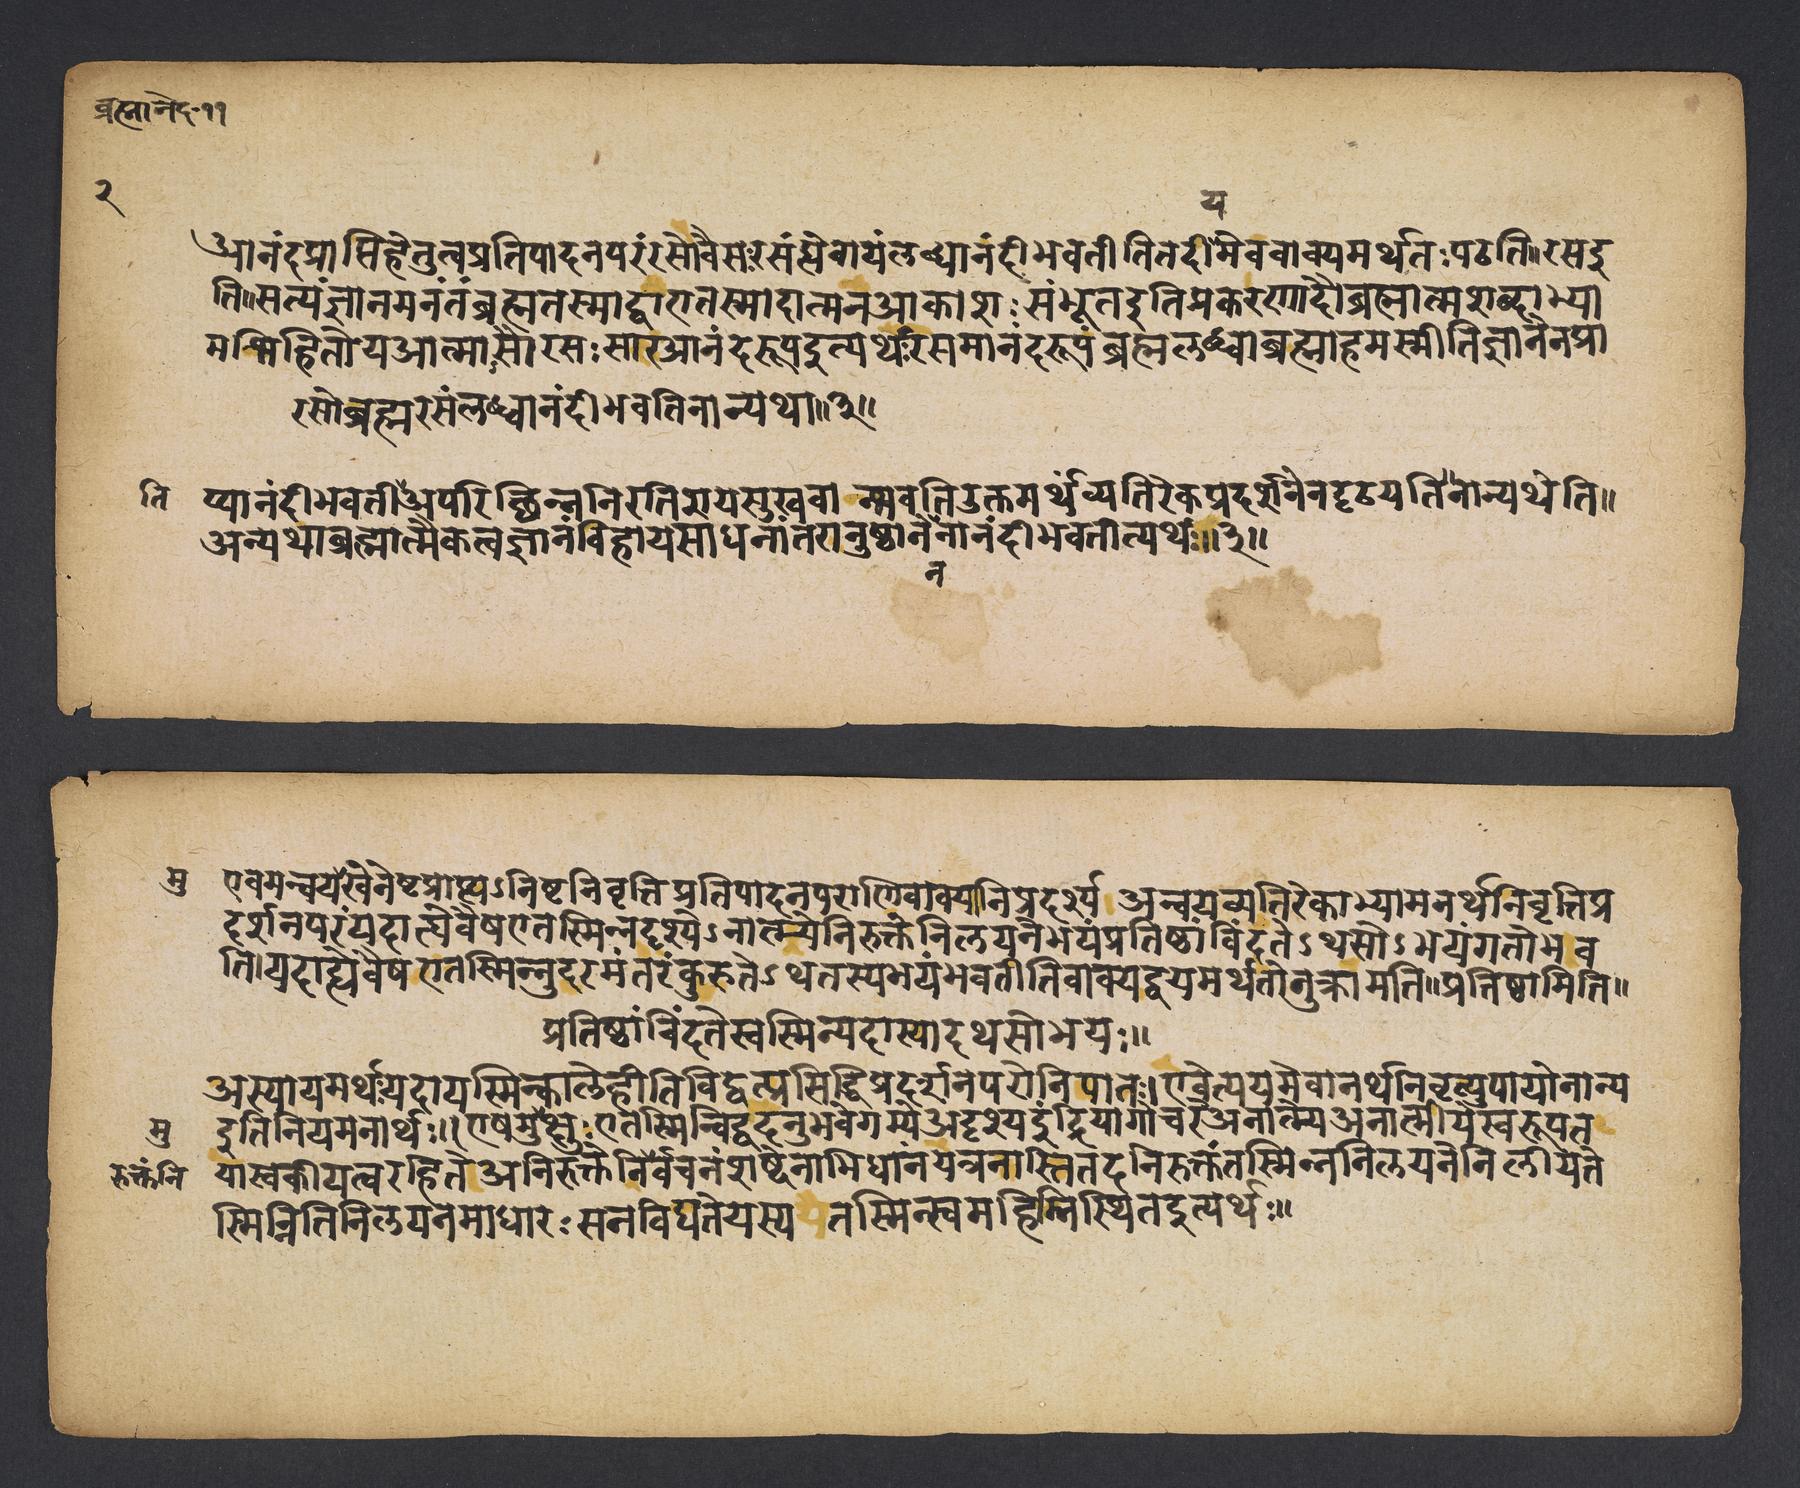 ब्रह्मानंद ११
२
य
आनंदप्राप्तिहेतुत्वप्रतिपादनपरंरसोवैसःरसंह्येवायंलब्ध्वानंदीभवतीतितदीमेववाक्यमर्थतःपठति॥रसइ
ति॥सत्यंज्ञानमनंतंब्रह्मतस्माद्वाएतस्मादात्मनआकाशःसंभूतइतिप्रकरणादौब्रह्मात्मशब्दाभ्या
मभिहितोयआत्मासौरसःसारआनंदरूपइत्यर्थःरसमानंदरूपंब्रह्मलब्ध्वाब्रह्माहमस्मीतिज्ञानेनप्रा
रसोब्रह्मरसंलब्ध्वानंदीभवतिनान्यथा॥३॥
ति प्यानंदीभवतीअपरिच्छिन्ननिरतिशयसुखवा न्भवतिउक्तमर्थंव्यतिरेकप्रदर्शनेनदृढयतिनान्यथेति॥
अन्यथाब्रह्मात्मैकत्वज्ञानंविहायसाधनांतरानुष्ठानेनानंदीभवतीत्यर्थः॥३॥
न
मु एवमन्वयखेनेष्टप्राप्त्यऽनिष्टनिवृत्तिप्रतिपादनपराणिवाक्यानिप्रदर्श्य अन्वयव्यतिरेकाभ्यामनर्थनिवृत्तिप्र
दर्शनपरंयदाह्येवैषएतस्मिन्नदृश्येऽनात्म्येनिरुक्तेनिलयनेभयंप्रतिष्ठांविंदतेऽथसोऽभयंगतोभव
ति।यदाह्येवैषएतस्मिन्नुदरमंतरंकुरुतेऽथतस्यभयंभवतीतिवाक्यद्वयमर्थतोनुक्रामति॥प्रतिष्ठामिति॥
प्रतिष्ठांविंदतेस्वस्मिन्यदास्यादथसोभयः॥
अस्यायमर्थःयदायस्मिन्कालेहीतिविद्वत्प्रसिद्धिप्रदर्शनपरोनिपातः।एवेत्ययमेवानर्थनिवृत्त्युपायोनान्य
मु इतिनियमनार्थः॥एषमुक्षुःएतस्मिन्विद्वदनुभवगम्येअदृश्यइंद्रियागोचरेअनात्म्येअनात्मीयेस्वरूपत
रुक्तंनि यास्वकीयत्वरहितेअनिरुक्तेनिर्वचनंशब्देनाभिधानंयत्रनास्तितदनिरुक्तंतस्मिन्ननिलयनेनिलीयते
स्मिन्नितिनिलयनमाधारःसनविद्यतेयस्य तस्मिन्स्वमहिम्निस्थितइत्यर्थः॥